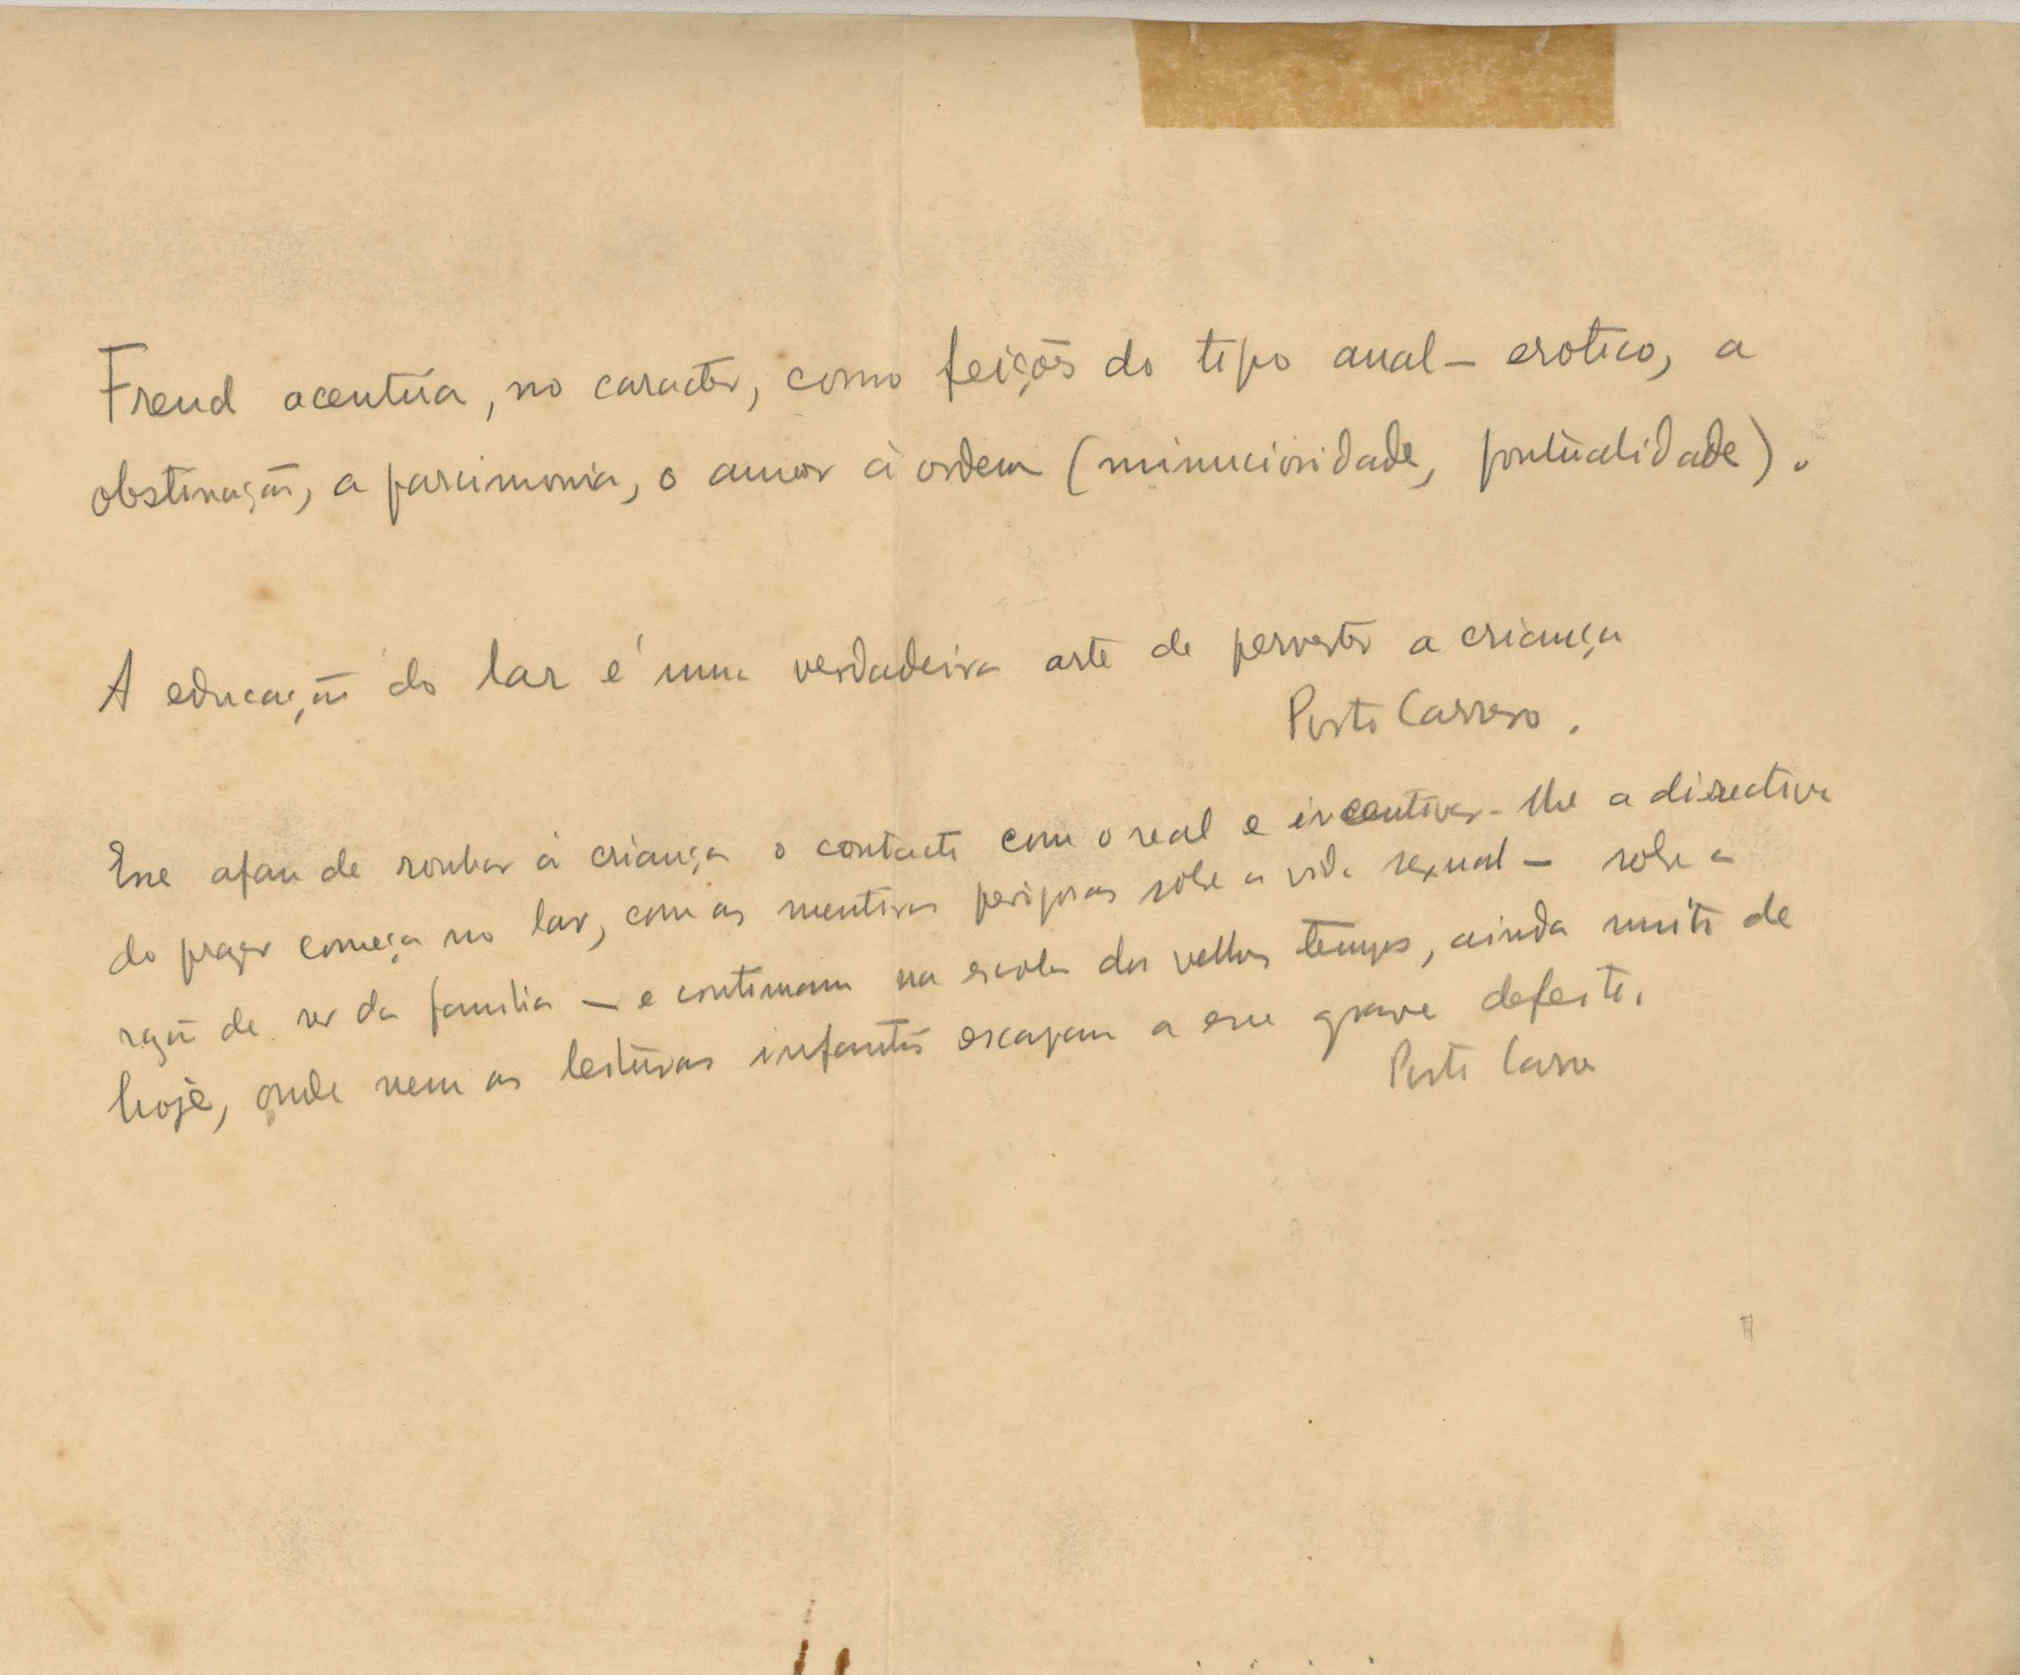 Freud acentúa, no caracter, como feições do tipo anal-erotico, a
obstinação, a parcimonia, o amor á ordem (minuciosidade, pontualidade).
A educação do lar é uma verdadeira arte de perverter a criança
Porto Carrero.
Esse afan de roubar á criança o contacto com o real e incentivar-lhe a directiva
do prazer começa no lar, com as mentiras perigosas sobre a vida sexual — sobre a
razão de ser da familia — e continuam na escola dos velhos tempos, ainda muito de
hoje, onde nem as leituras infantis escapam a esse grave defeito.
Porto Carre